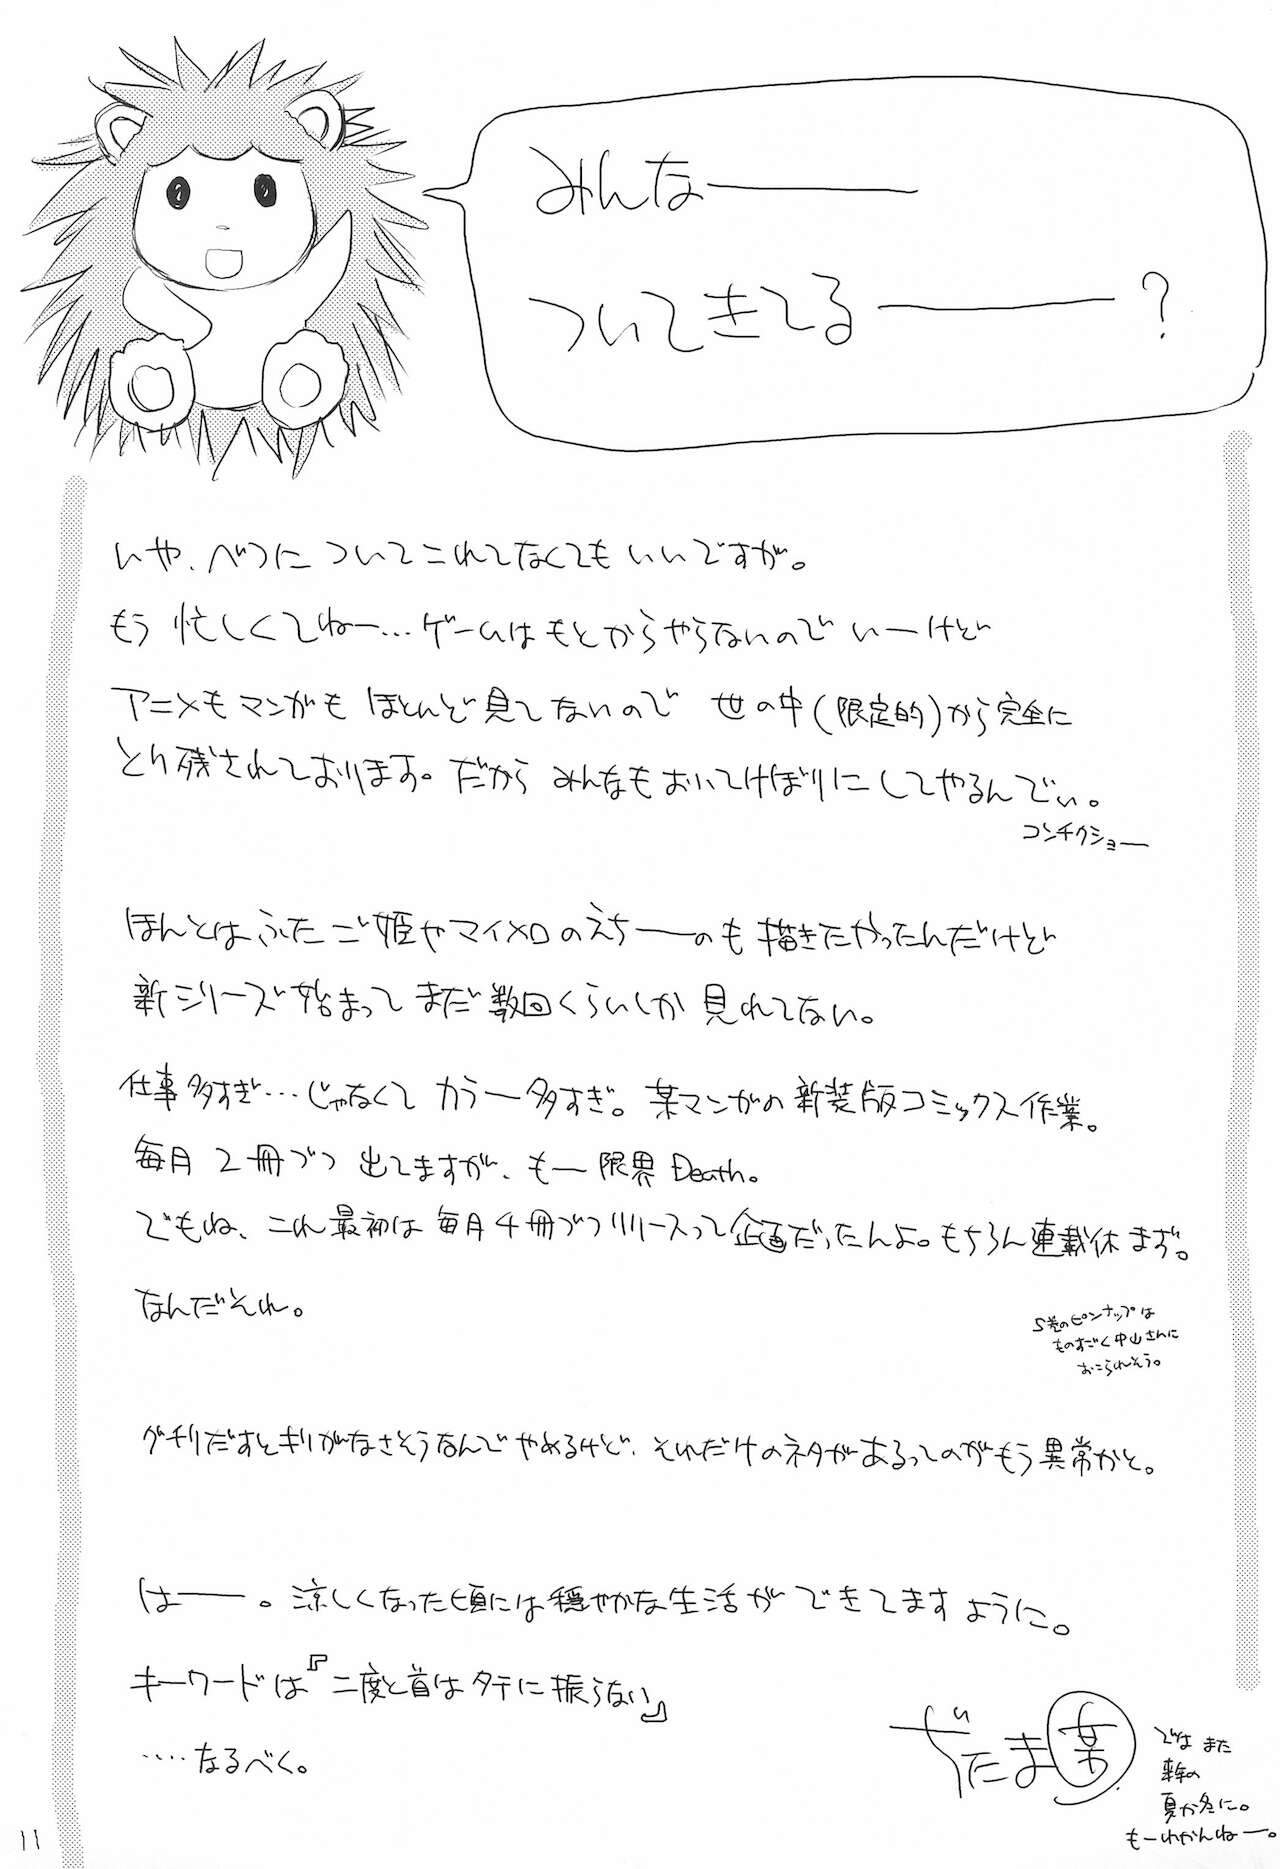 みんなーーー
ついてきてるーーー?
いや、べつに ついてこれてなくても いいですが。
もう 忙しくてねー…ゲームはもとからやらないので いーけど
アニメもマンガも ほとんど見てないので 世の中(限定的)から完全に
とり残されております。だから みんなもおいてけぼりにしてやるんでぃ。
コンチクショー
ほんとは ふたご姫やマイメロのえちーーのも描きたかったんだけど
新シリーズ始まって まだ数回くらいしか 見れてない。
仕事多すぎ…じゃなくて カラー多すぎ。某マンガの新装版コミックス作業。
毎月 2冊づつ 出てますが、もー限界Death。
でもね、これ最初は毎月4冊づつリリースって企画だったんよ。もちろん連載休まず。
なんだそれ。
5巻のピンナップは
ものすごく中山さんに
おこられそう。
グチりだすとキリがなさそうなんでやめるけど、それだけのネタがあるってのがもう異常かと。
はーー。涼しくなった頃には穏やかな生活が できてますように。
キーワードは『二度と首はタテに振らない』
‥‥なるべく。
ぢたま某
ではまた
来年の
夏か冬に。
もーわかんねー。
11